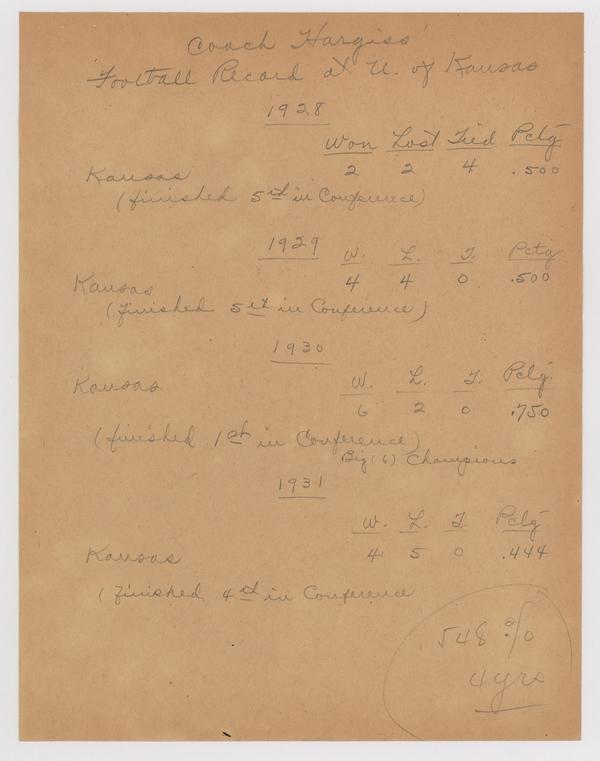 Coach Hargiss'
Football Record at U. of Kansas
1928
Won Lost Tied Pctg
Kansas 2 2 4 .500
(finished 5th in Conference)
1929 W. L. T. Pctg
Kansas 4 4 0 .500
(finished 5th in Conference)
1930
Kansas W. L. T. Pctg.
6 2 0 .750
(finished 1st in Conference)
Big (6) Champions
1931
W. L. T. Pctg
Kansas 4 5 0 .444
(finished 4th in Conference
548 %
4 yrs